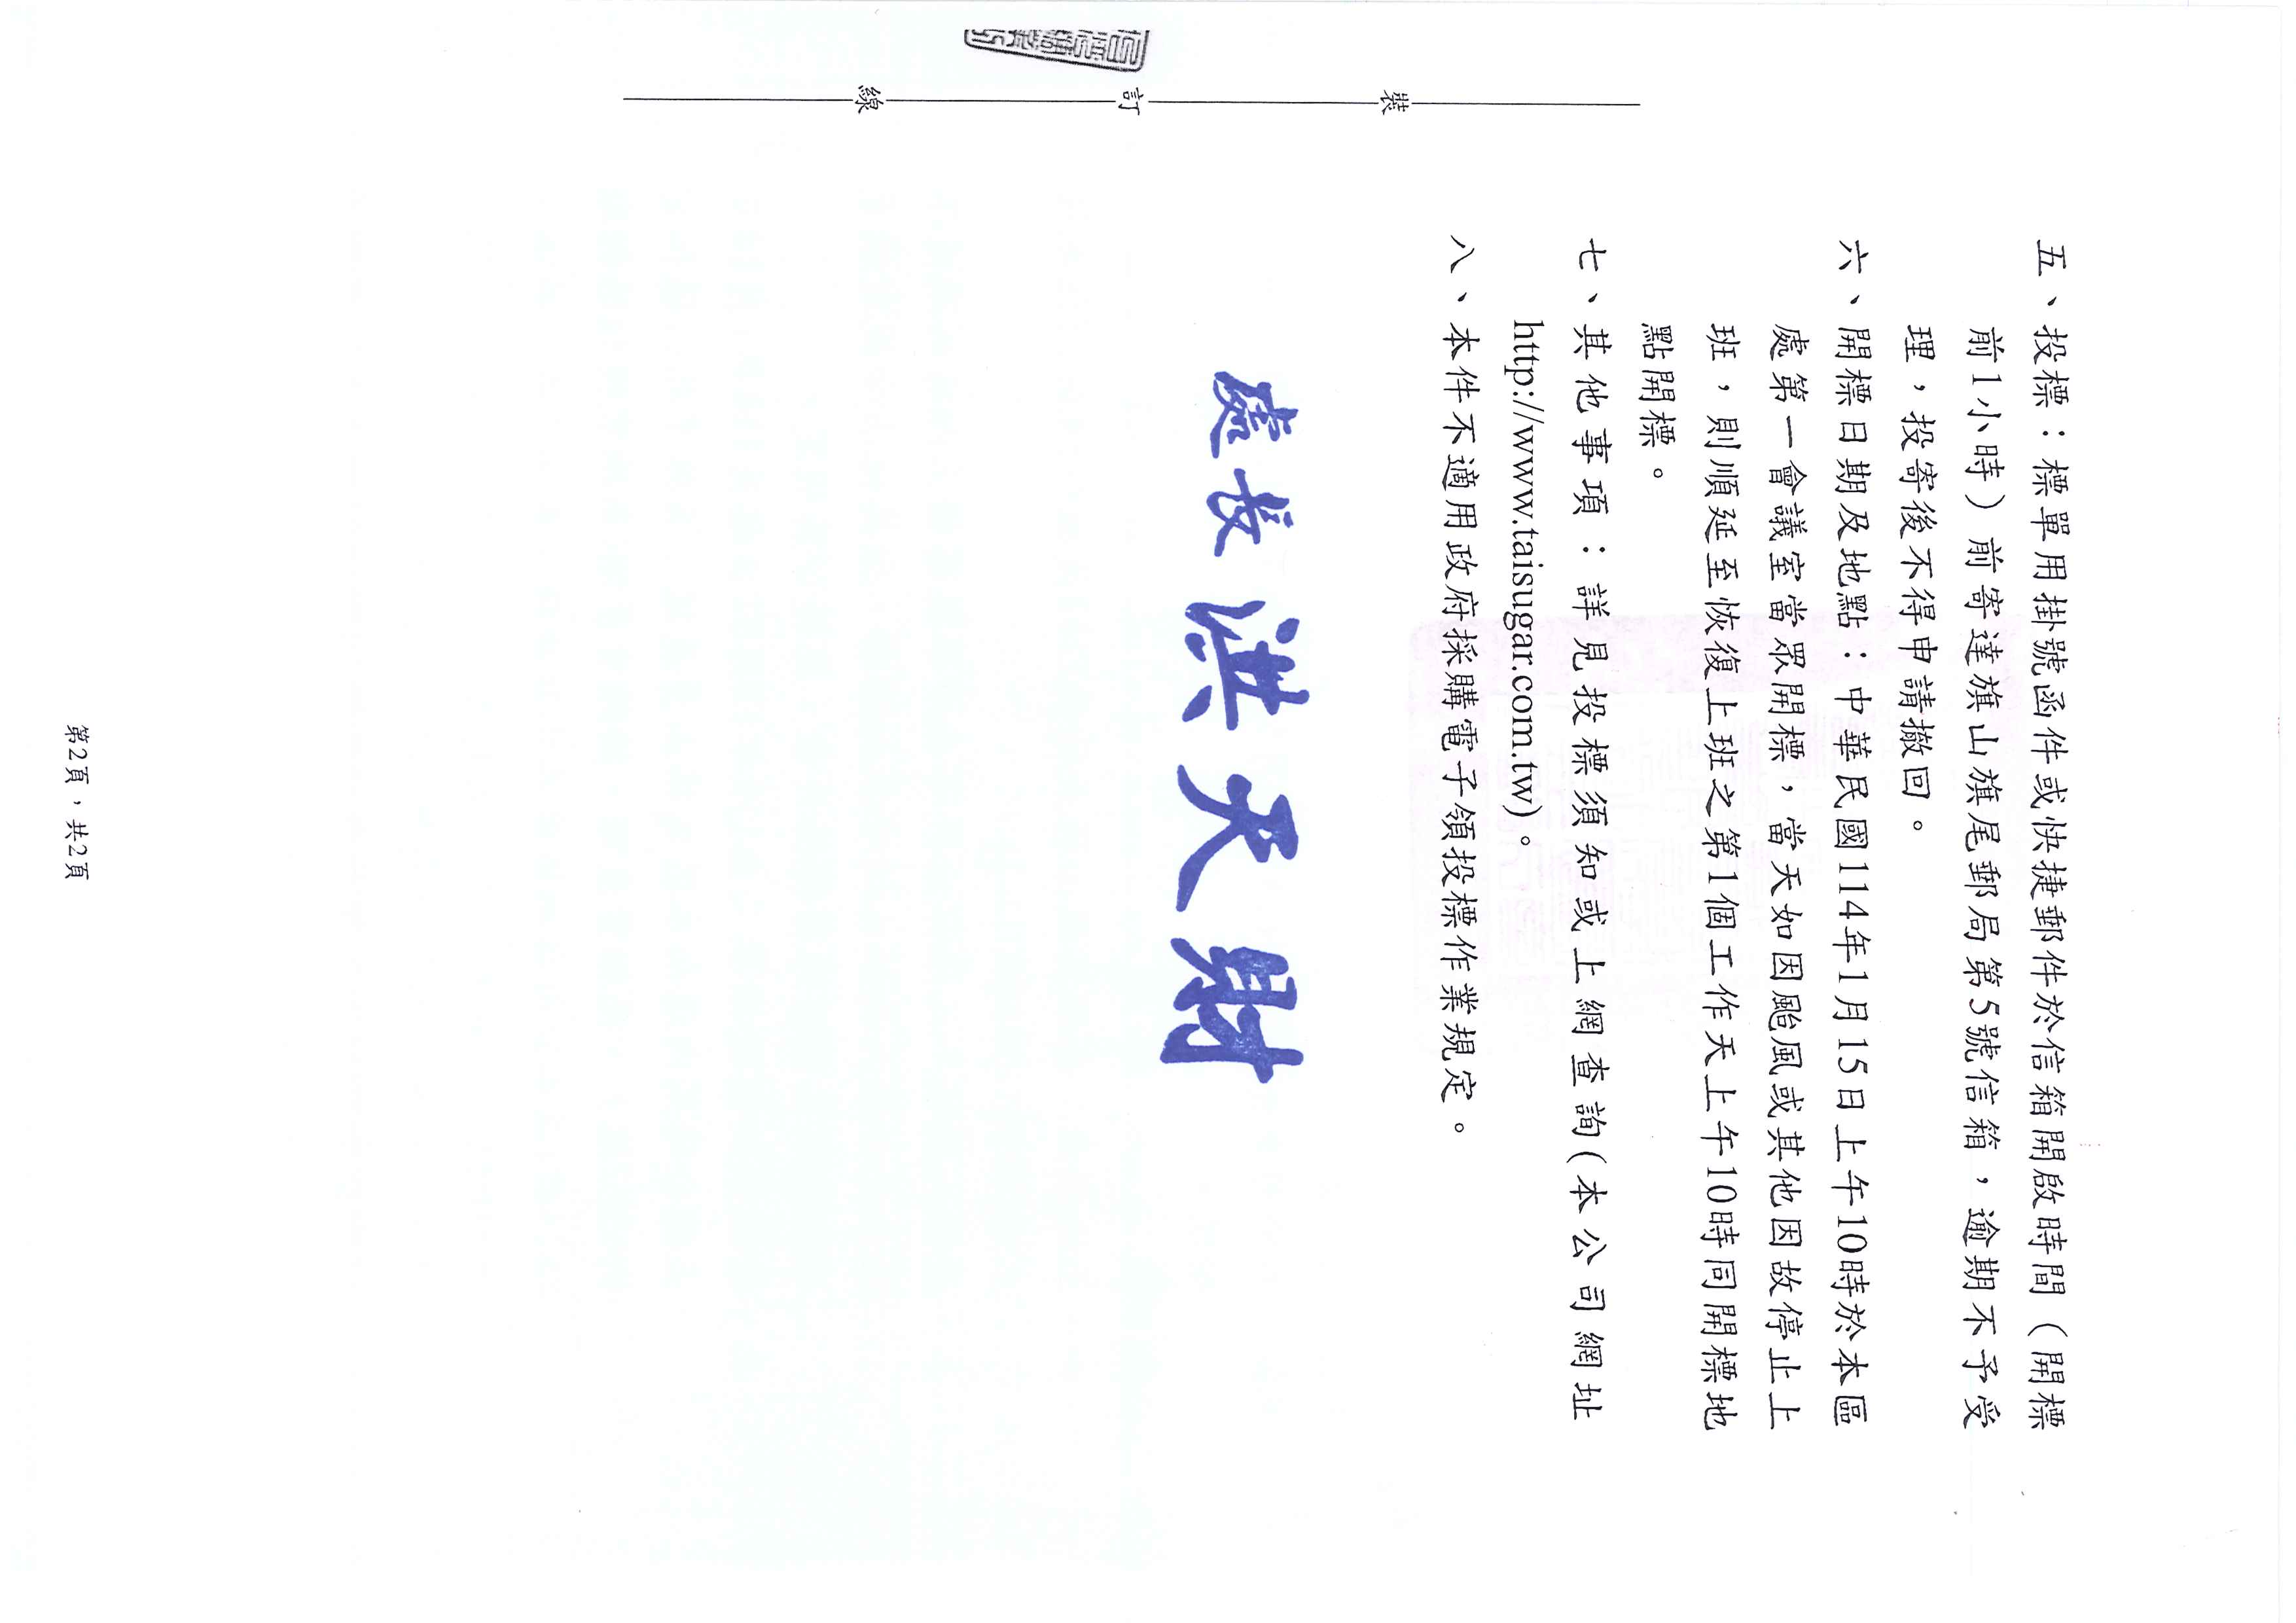 五、投標：標單用掛號函件或快捷郵件於信箱開啟時間（開標
前1小時）前寄達旗山旗尾郵局第5號信箱，逾期不予受
理，投寄後不得申請撤回。
六、開標日期及地點：中華民國114年1月15日上午10時於本區
處第一會議室當眾開標，當天如因颱風或其他因故停止上
班，則順延至恢復上班之第1個工作天上午10時同開標地
點開標。
七、其他事項：詳見投標須知或上網查詢(本公司網址
http://www.taisugar.com.tw)。
八、本件不適用政府採購電子領投標作業規定。
處長 洪天財
裝
訂
線
第2頁，共2頁